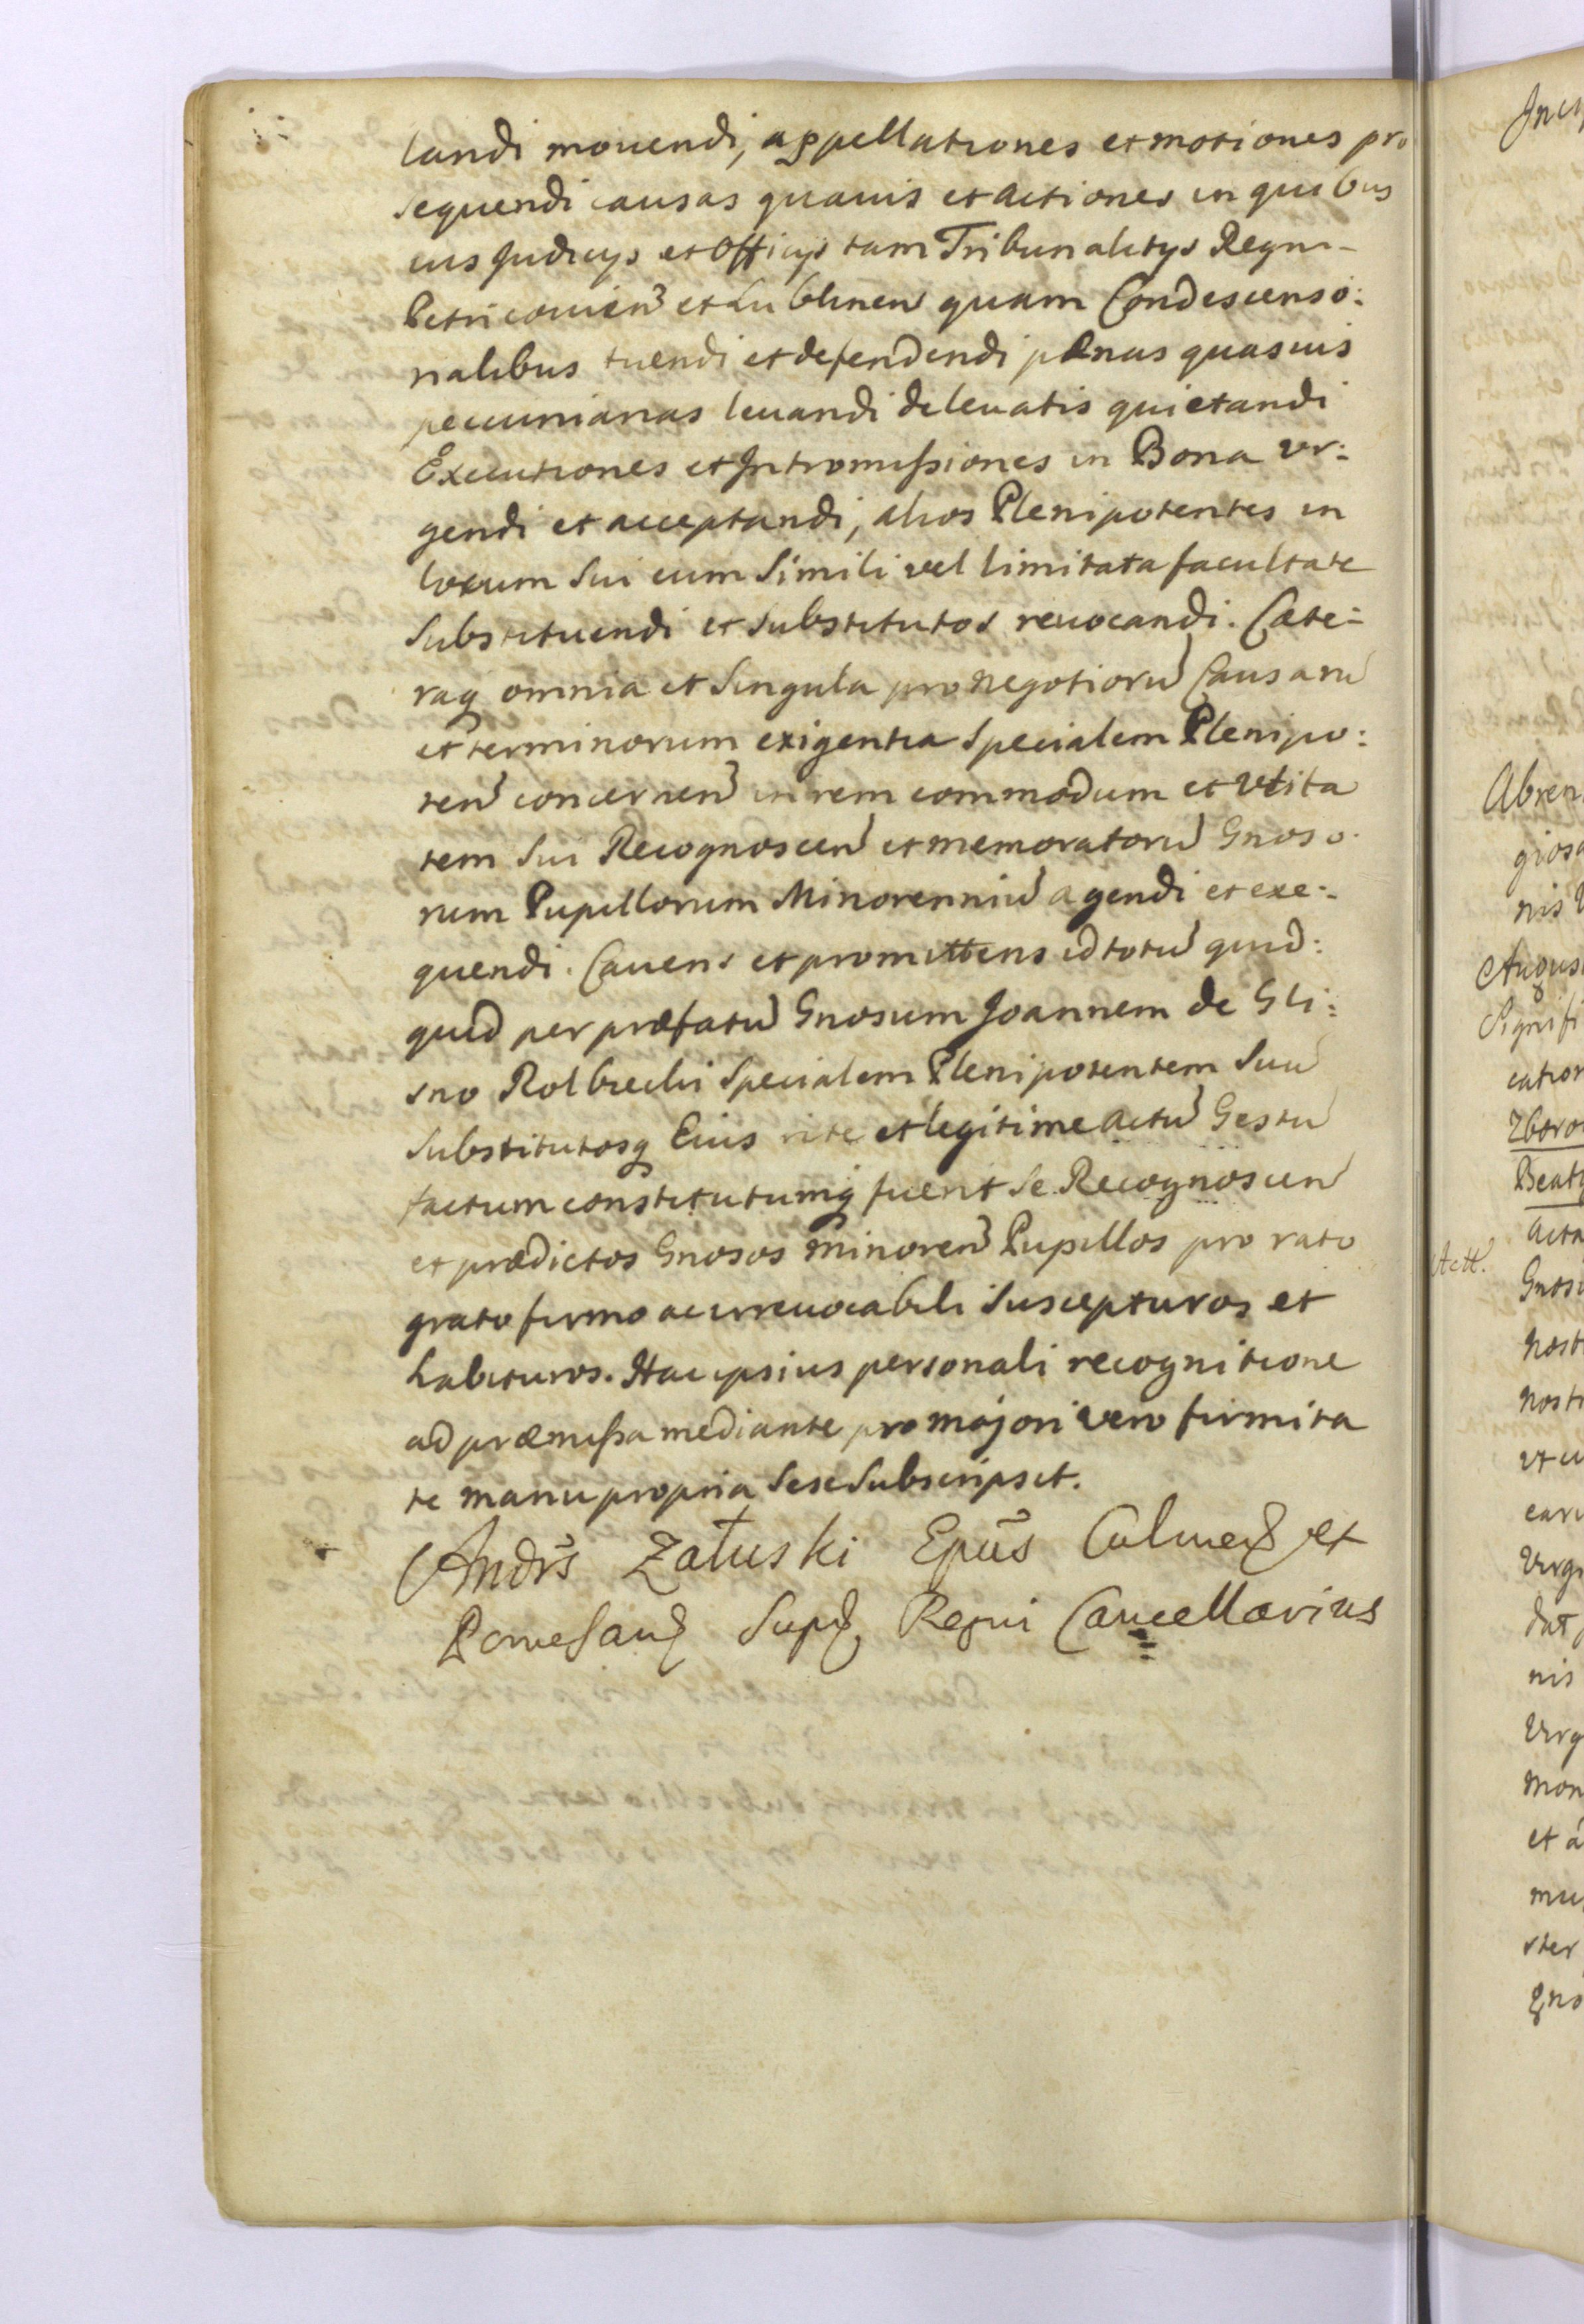 landi mouendi, appellationes et motiones pro
sequendi causas quauis et actiones in quibus
uis Judicijs et Officijs tam Tribunalitijs Regni
Petricouien et Lublinen quam Condescenso:
nalibus tuendi et defendendi pænas quasuis
pecuniarias leuandi de leuatis quietandi
Executiones et Intromissiones in Bona vr:
gendi et acceptandi, alios Plenipotentes in
locum sui cum simili vel limitata facultate
substituendi et substitutos reuocandi. Cæte:
raq omnia et singula pro negotioru Causaru
et terminorum exigentia specialem Plenipo:
ten concernen in rem commodum et vtita
tem sui Recognoscen et memoratoru Gnoso
rum Pupillorum Minorenniu agendi et exe:
quendi. Cauens et promittens id totu quid:
quid per præfatu Gnosum Joannem de Gli:
sno Rolbiecki specialem Plenipotentem suu
substitutosq Eius rite et legitime actu Gestu
factum constitutumq fuerit se Recognoscen
et prædictos Gnosos minoren Pupillos pro rato
grato firmo ac irreuocabili suscepturos et
habituros. Hac ipsius personali recognitione
ad præmissa mediante pro majori vero firmita
te manu propria sese subscripsit.
Andrs Załuski Epus Culmen et
Pomesan Supr Regni Cancellarius
Abren
giosa
nis
August
Signifi
cation
Zboro
Beat
Actt.
acta
Gnos
nost
nost
et cu
earu
Virgi
dat
nis
Virg
mon
et a
mu
rter
gno